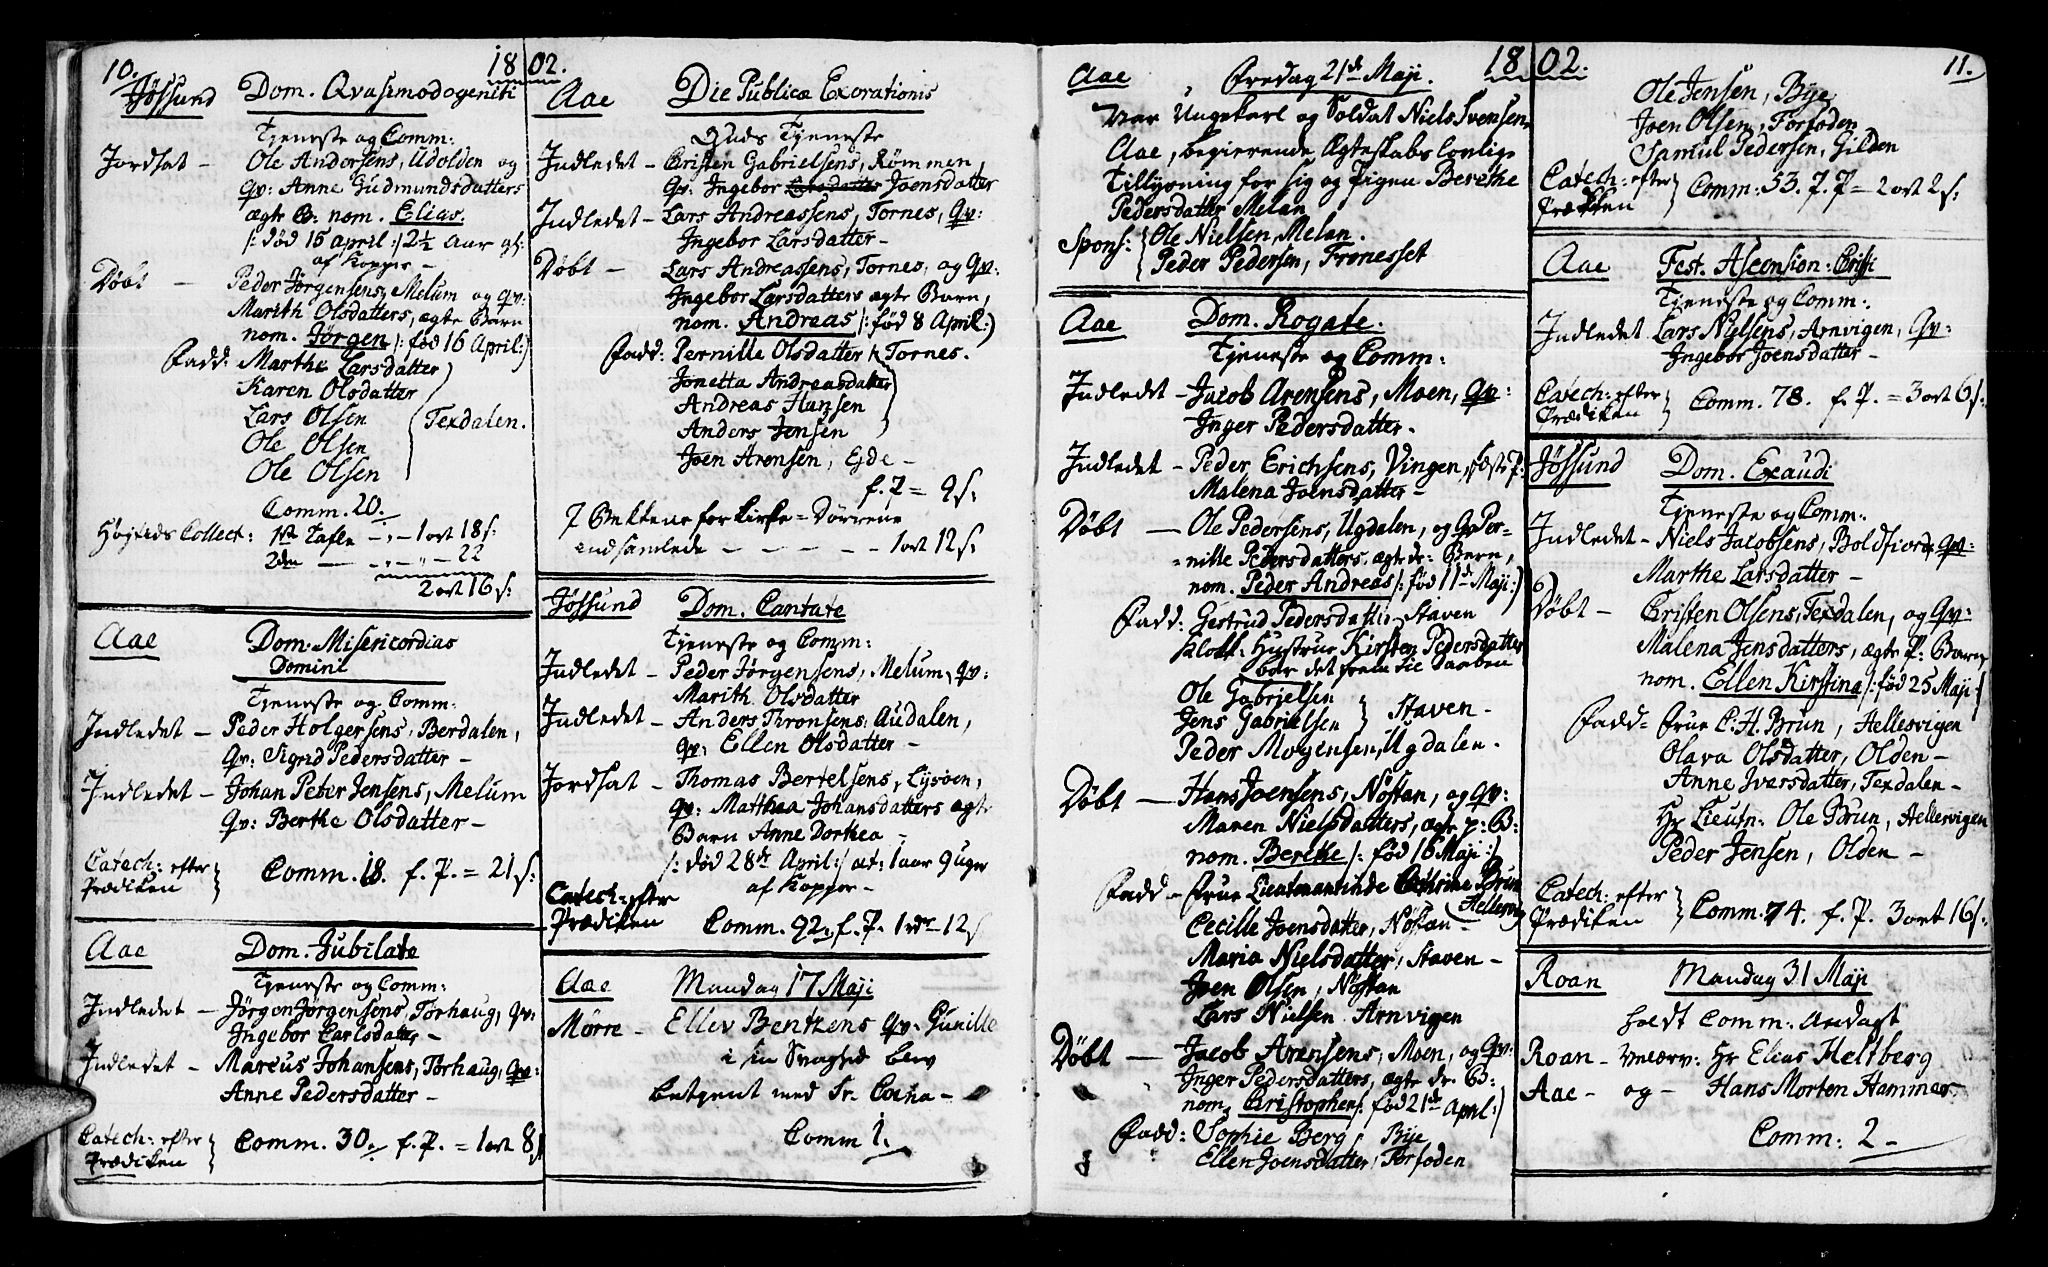 10.
1802.
Jössund Dom. Qvasimodogeniti
Tjeneste og Comm:
Jordsat – Ole Andorsens, Udolden og
Qv: Anne Gudmundsdatters
ægte B: nom. Elias.
/: død 15 april :/ 2½ Aar gl:
af Kopper –
Döbt – Peder Jørgensens, Melum og qv:
Marith Olsdatters, ægte Barn
nom. Jørgen /: fød 16 April:/
Fadd: Marthe Larsdatter
Karen Olsdatter
Lars Olsen
Ole Olsen
Ole Olsen
Texdalen.
Comm. 20.
Højtids Collect: 1ste Tafle – „ – 1 ort 18 s:
2den — „ – „ – 22
2 ort 16 s:
Aae Dom. Misericordias
Domini
Tjeneste og Comm:
Indledet – Peder Holgersens, Berdalen,
qv: Sigrid Pedersdatter –
Indledet – Johan Peter Jensens, Melum
Qv: Berthe Olsdatter –
Catech: efter
Prædiken
Comm. 18. f. P. = 21 s:
Aae Dom. Jubilate
Tjeneste og Comm:
Indledet – Jörgen Jörgensens, Torhaug, qv:
Ingebor Carlsdatter –
Indledet – Marcus Johansens, Torhaug, Qv:
Anne Pedersdatter –
Catech: efter
Prædiken
Comm. 30. f. P. = 1 ort 8 s
Aae Die Publicæ Exorationis
Guds Tjeneste
Indledet – Cristen Gabrielsens, Römmen,
qv: Ingebor Larsdatter Joensdatter
Indledet – Lars Andreassens, Tornes, Qv:
Ingebor Larsdatter –
Döbt – Lars Andreassens, Tornes, og Qv:
Ingebor Larsdatters ægte Barn,
nom. Andreas /: fød 8 April:/
Fadd: Pernille Olsdatter Tornes.
Jonetta Andreasdatter
Andreas Hansen
Anders Jensen
Joen Arensen, Ejde –
f. P = 9 s:
I Bekkene for Kirke = Dörrene
indsamlede – – – – – 1 ort 12 s:
Jössund Dom. Cantate
Tjeneste og Comm:
Indledet – Peder Jørgensens, Melum, qv:
Marith Olsdatter
Indledet – Anders Thronsens, Audalen,
qv: Ellen Olsdatter –
Jordsat – Thomas Bertelsens, Lysøen,
qv: Matthea Johansdatters ægte
Barn Anne Dorthea –
/: død 28de April:/ æt: 1 aar 9 uger
af Kopper –
Catech: efter
Prædiken
Comm. 92. f. P. 1 rdr 12 s
Aae Mandag 17 Maji
Mörre – Ellev Bentzens qv: Gunille
i sin Svaghed blev
betjent med Sr. Coena –
Comm 1.
Aae Fredag 21de Maji. 1802. 11.
Var Ungekarl og Soldat Niels Svensen,
Aae, begierende Ægteskabs lovlige
Tillysning for sig og Pigen Berethe
Pedersdatter Melan
Spons: Ole Nielsen Melan.
Peder Pedersen, Fronesset
Aae Dom. Rogate.
Tjeneste og Comm:
Indledet – Jacob Arensens, Moen, qv:
Inger Pedersdatter.
Indledet – Peder Erichsens, Vingen, fæste P:
Malena Joensdatter –
Döbt — Ole Pedersens, Ugdalen, og Qv Per-
nille Pedersdatters, ægte dr: Barn,
nom. Peder Andreas /: fød 11de Maji:/
Fadd: Gertrud Pedersdatter Staven
Klokk: Hustrue Kirsten Pedersdatter
bar det frem til Daaben
Ole Gabrielsen
Jens Gabrielsen
Staven –
Peder Mogensen, Ugdalen.
Döbt — Hans Joensens, Nöstan, og qv:
Maren Nielsdatters, ægte p: B:
nom. Berethe /: fød 16 Maji:/
Fadd – Frue Lieutenantinde Cathrine Brun
Hellesvig
Cecille Joensdatter, Nöstan –
Maria Nielsdatter, Staven –
Joen Olsen, Nöstan
Lars Nielsen Arnvigen
Döbt — Jacob Arensens, Moen, og Qv:
Inger Pedersdatters, ægte dr. B:
nom. Cristopher /: fød 21de April:/
Fadd: Sophie Berg, Bye
Ellen Joensdatter, Torfoden
Ole Jensen, Bye
Joen Olsen, Torfoden
Samul Pedersen, Gilden
Catech: efter
Præken
Comm: 53. f. P = 2 ort 2 s:
Aae Fest. Ascension: Cristi
Tjeneste og Comm:
Indledet Lars Nielsens, Arnvigen, Qv:
Ingebor Joensdatter –
Catech: efter
Prædiken
Comm. 78. f. P. = 3 ort 6 s:
Jössund Dom. Exaudi
Tjeneste og Comm:
Indledet – Niels Jacobsens, Boldfiord, qv:
Marthe Larsdatter –
Döbt – Cristen Olsens, Texdalen, og Qv:
Malena Jensdatters, ægte P: Barn
nom. Ellen Kirstina /: fød 25 Maji:/
Fadd = Frue C. H. Brun, Hellesvigen
Olava Olsdatter, Olden –
Anne Iversdatter, Texdalen –
Hr Lieutn: Ole Brun, Hellesvigen
Peder Jensen, Olden –
Catech: efter
Prædiken
Comm. 74. f. P. 3 ort 16 s:
Roan Mandag 31 Maji
holdt Comm: Andagt
Roan – Velærv: Hr Elias Heltberg
Aae – og – Hans Morten Hammer
Comm: 2 –